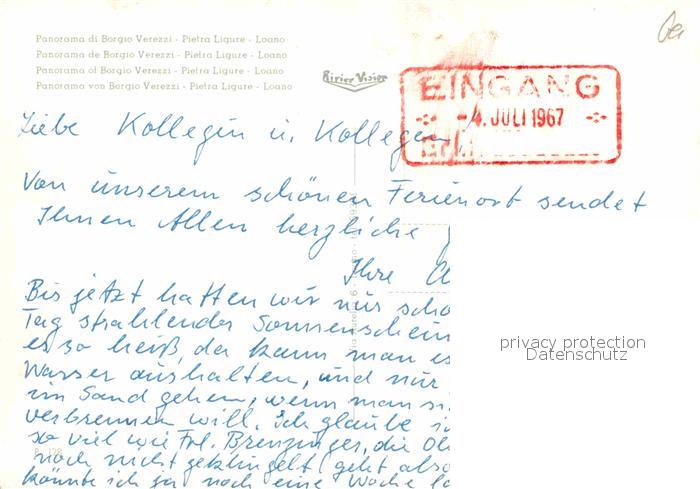 Panorama di Borgio Verezzi - Pietra Ligure - Loano
Panorama de Borgio Verezzi - Pietra Ligure - Loano
Panorama of Borgio Verezzi - Pietra Ligure - Loano
Panorama von Borgio Verezzi - Pietra Ligure - Loano
EINGANG
-4. JULI 1967
Liebe Kollegin u. Kollegen,
Von unserem schönen Ferienort sendet
Ihnen Allen herzliche
Ihre
Bis jetzt hatten wir nur schö
Tag strahlender Sonnenschein
es so heiß, da kann man es
Wasser aushalten, und nur
im Sand gehen, wenn man si
verbrennen will. Ich glaube i
so viel wie Frl. Brenzinger, die
noch nicht geklingelt geht also
könnte ich ja noch eine Woche
privacy protection
Datenschutz